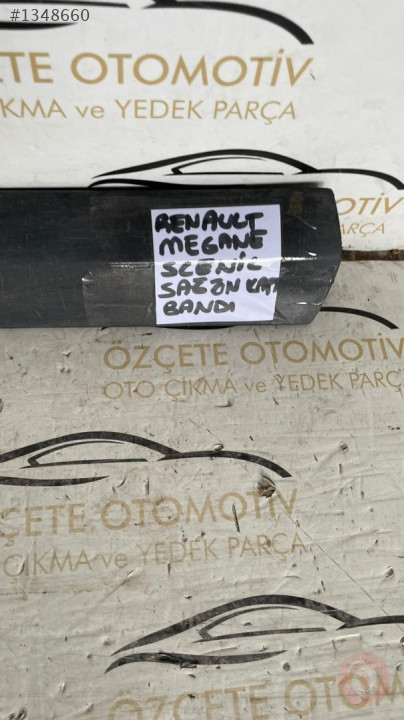 #1348660
ÇETE OTOMOTİV
ÇIKMA ve YEDEK PARÇA
OTİV
ARÇA
RENAULT
MEGANE
SCENIC
BANDI
ÖZÇETE OTOMOTİV
OTO ÇIKMA ve YEDEK PARÇ
ÇETE OTOMOTİV
ÇIKMA ve YEDEK PARÇA